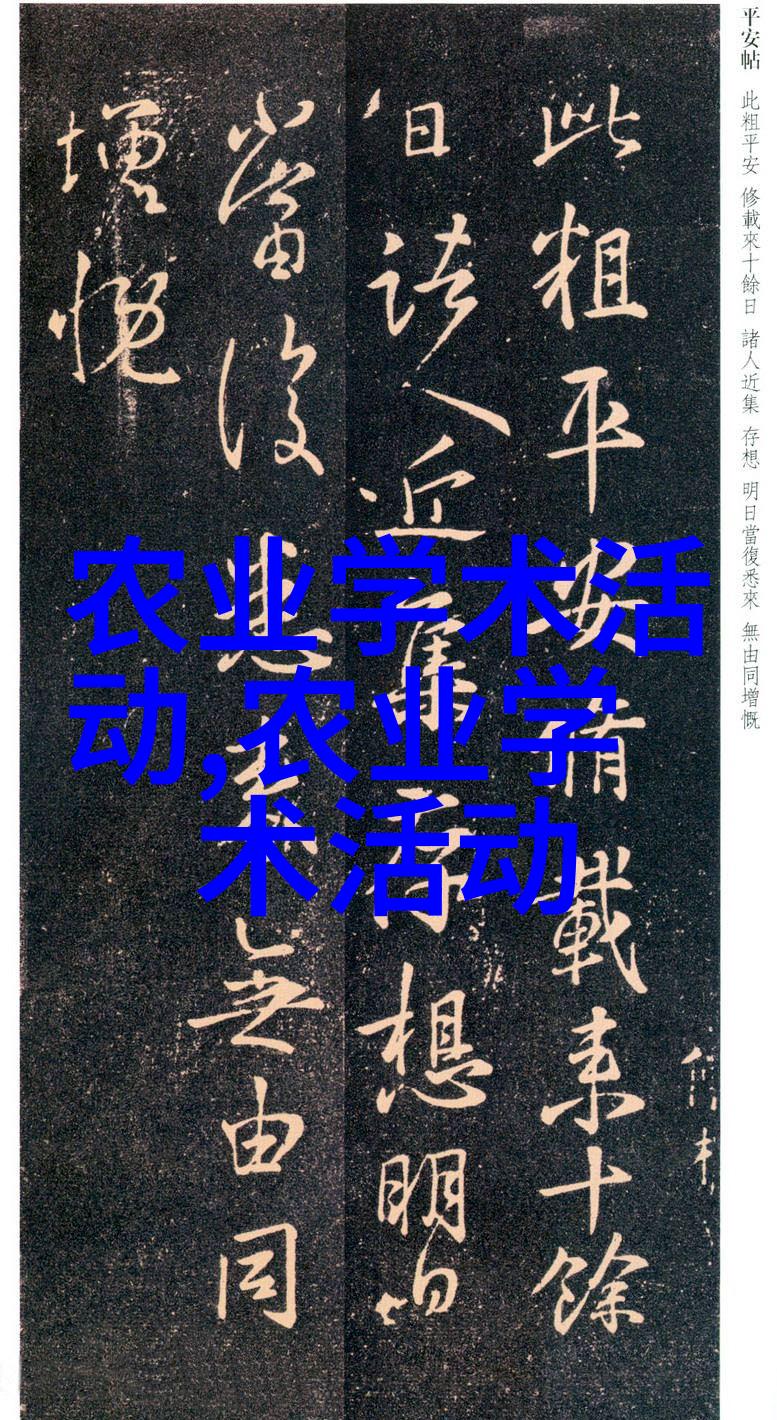 平安帖 此粗平安 修載來十餘日 諸人近集 存想 明日當復悉來 無由同增慨
此粗平安脩載来十餘
日諸人近集存想明日
當復悉来無由同
增慨
农业学术活
动,农业学
术活动